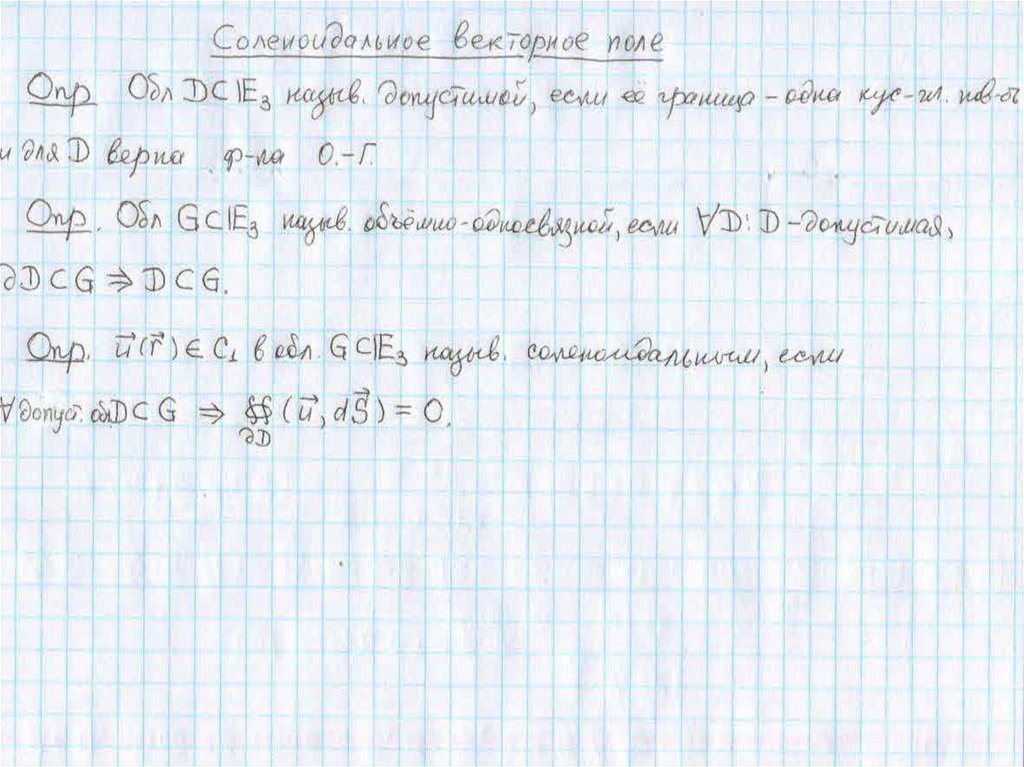 Соленоидальное векторное поле
Опр Обл D⊂𝔼₃ назыв. допустимой, если её граница – одна кус-гл. пов-ть
и для D верна ф-ла О.-Г.
Опр. Обл G⊂𝔼₃ назыв. объёмно-односвязной, если ∀D: D – допустимая,
∂D⊂G ⇒ D⊂G.
Опр. u⃗(r⃗) ∈ C₁ в обл. G⊂𝔼₃ назыв. соленоидальным, если
∀ допуст. обл D⊂G ⇒ ∯ (u⃗, dS⃗) = 0.
∂D